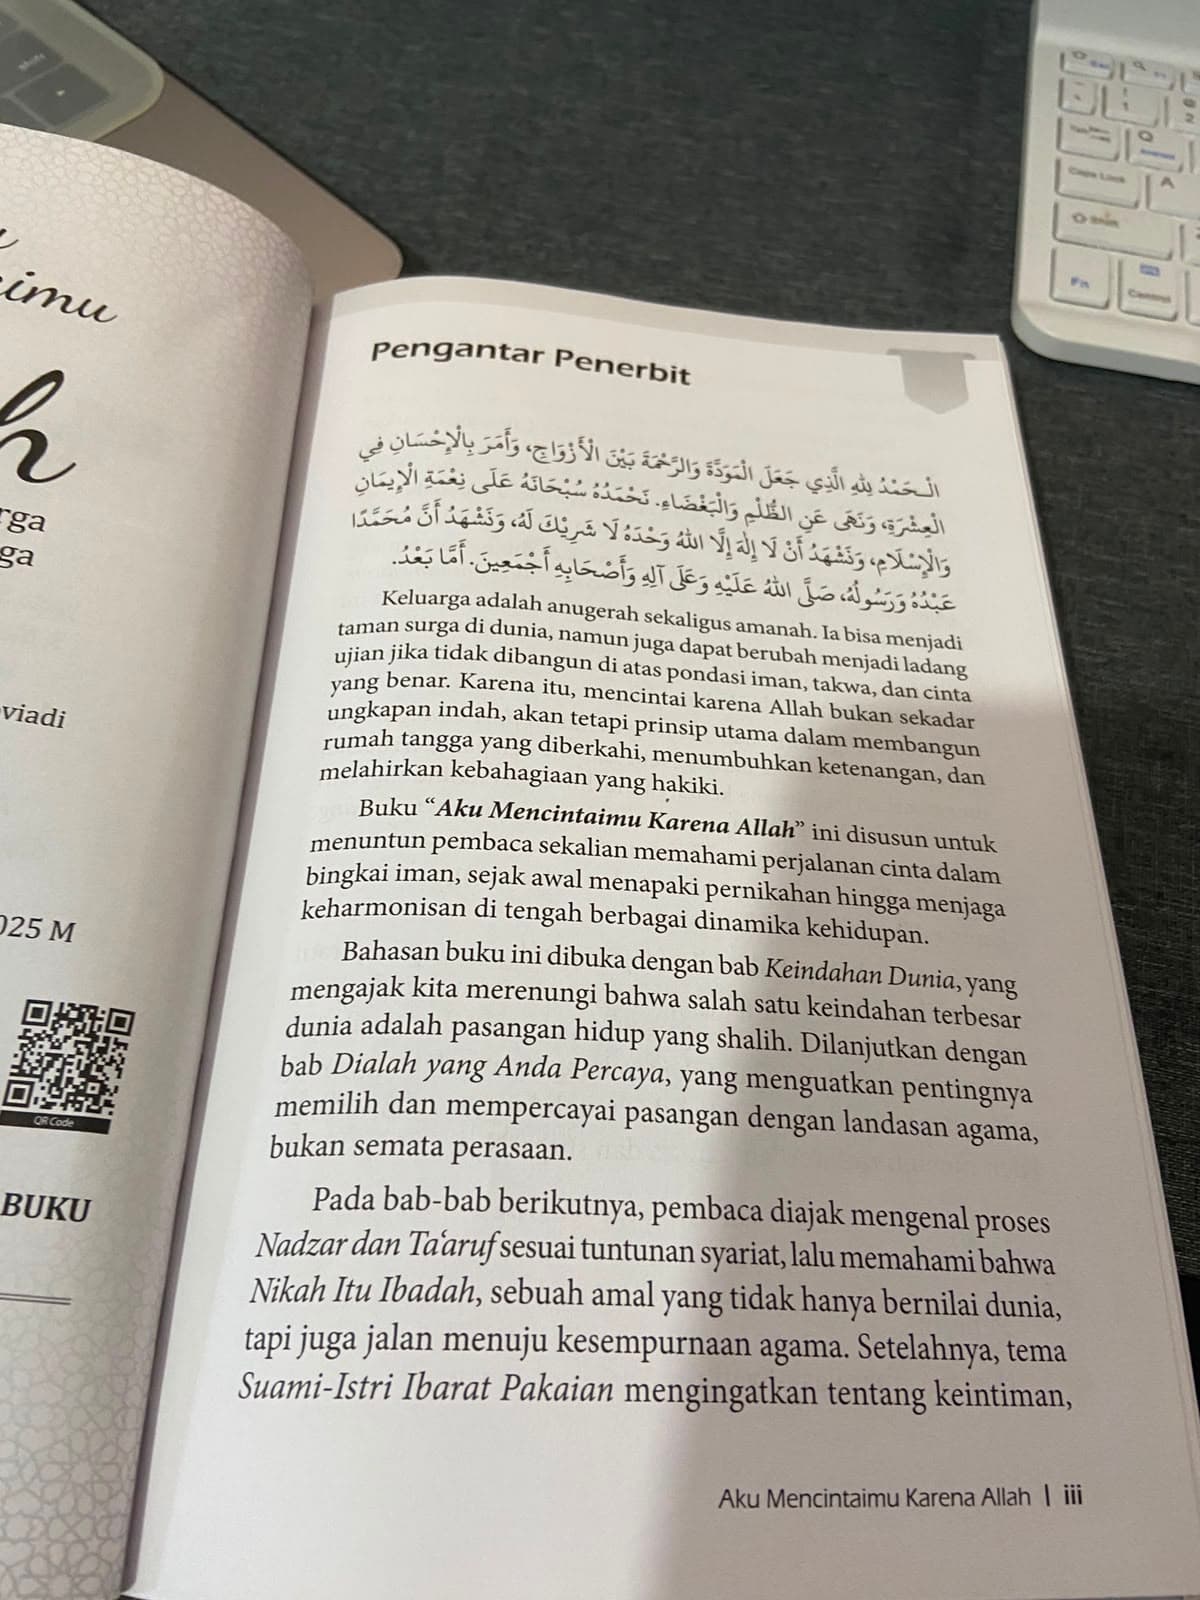 imu
h
rga
ga
viadi
025 M
QR Code
BUKU
Pengantar Penerbit
الْـحَمْدُ لِلهِ الَّذِي جَعَلَ الْمَوَدَّةَ وَالرَّحْمَةَ بَيْنَ الْأَزْوَاجِ، وَأَمَرَ بِالْإِحْسَانِ فِي
الْعِشْرَةِ، وَنَهَى عَنِ الظُّلْمِ وَالْبَغْضَاءِ. نَحْمَدُهُ سُبْحَانَهُ عَلَى نِعْمَةِ الْإِيمَانِ
وَالْإِسْلَامِ، وَنَشْهَدُ أَنْ لَا إِلَهَ إِلَّا اللهُ وَحْدَهُ لَا شَرِيْكَ لَهُ، وَنَشْهَدُ أَنَّ مُحَمَّدًا
عَبْدُهُ وَرَسُولُهُ، صَلَّى اللهُ عَلَيْهِ وَعَلَى آلِهِ وَأَصْحَابِهِ أَجْمَعِينَ. أَمَّا بَعْدُ.
Keluarga adalah anugerah sekaligus amanah. Ia bisa menjadi
taman surga di dunia, namun juga dapat berubah menjadi ladang
ujian jika tidak dibangun di atas pondasi iman, takwa, dan cinta
yang benar. Karena itu, mencintai karena Allah bukan sekadar
ungkapan indah, akan tetapi prinsip utama dalam membangun
rumah tangga yang diberkahi, menumbuhkan ketenangan, dan
melahirkan kebahagiaan yang hakiki.
Buku “Aku Mencintaimu Karena Allah” ini disusun untuk
menuntun pembaca sekalian memahami perjalanan cinta dalam
bingkai iman, sejak awal menapaki pernikahan hingga menjaga
keharmonisan di tengah berbagai dinamika kehidupan.
Bahasan buku ini dibuka dengan bab Keindahan Dunia, yang
mengajak kita merenungi bahwa salah satu keindahan terbesar
dunia adalah pasangan hidup yang shalih. Dilanjutkan dengan
bab Dialah yang Anda Percaya, yang menguatkan pentingnya
memilih dan mempercayai pasangan dengan landasan agama,
bukan semata perasaan.
Pada bab-bab berikutnya, pembaca diajak mengenal proses
Nadzar dan Ta‘aruf sesuai tuntunan syariat, lalu memahami bahwa
Nikah Itu Ibadah, sebuah amal yang tidak hanya bernilai dunia,
tapi juga jalan menuju kesempurnaan agama. Setelahnya, tema
Suami-Istri Ibarat Pakaian mengingatkan tentang keintiman,
Aku Mencintaimu Karena Allah | iii
Q
Caps Lock
A
Shift
Fn
Control